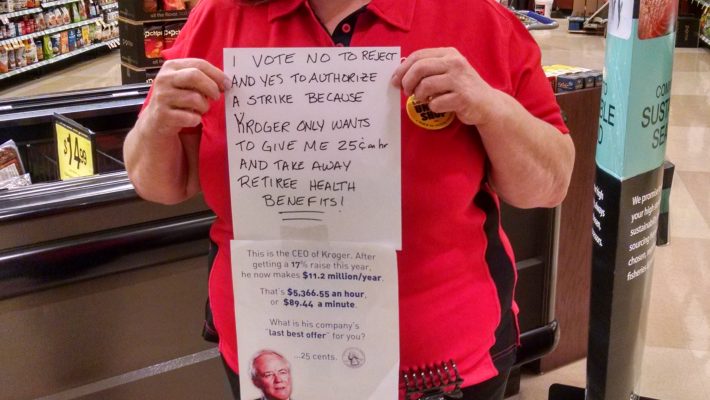 I VOTE NO TO REJECT
AND YES TO AUTHORIZE
A STRIKE BECAUSE
KROGER ONLY WANTS
TO GIVE ME 25¢ an hr
AND TAKE AWAY
RETIREE HEALTH
BENEFITS!
This is the CEO of Kroger. After
getting a 17% raise this year,
he now makes $11.2 million/year.
That's $5,366.55 an hour,
or $89.44 a minute.
What is his company's
"last best offer" for you?
...25 cents.
$14
popchips